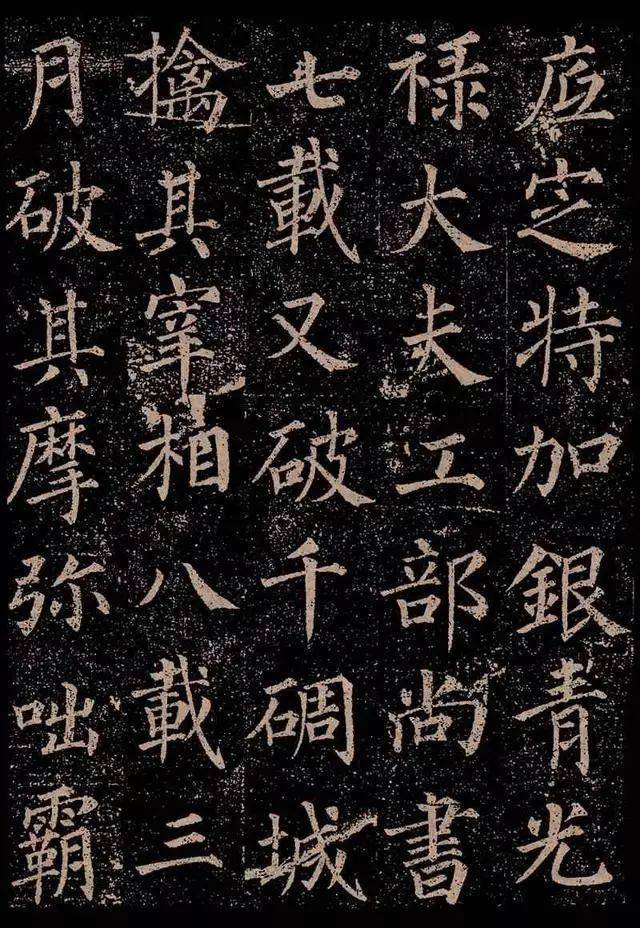 㡳㝎特加銀青光
禄大夫工部尚書
七載又破千碉城
擒其宰相八載三
月破其摩弥咄霸